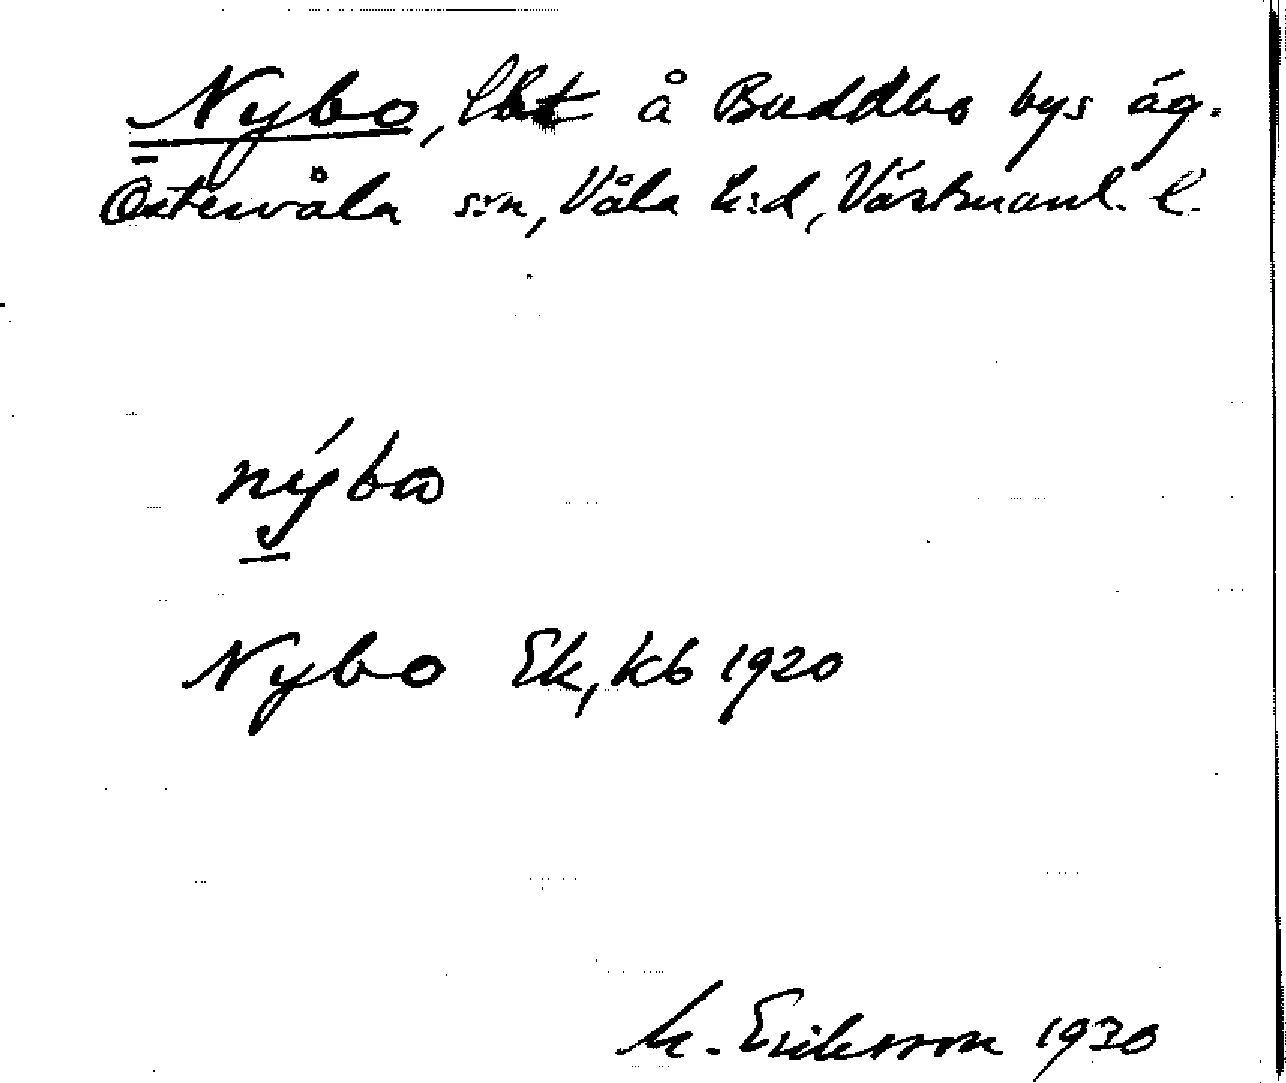 Nybo, lht å Buddbo bys äg.
Östervåla s:n, Våla h:d, Västmanl. l.
nýbω
Nybo Ek, kb 1920
M. Eriksson 1930